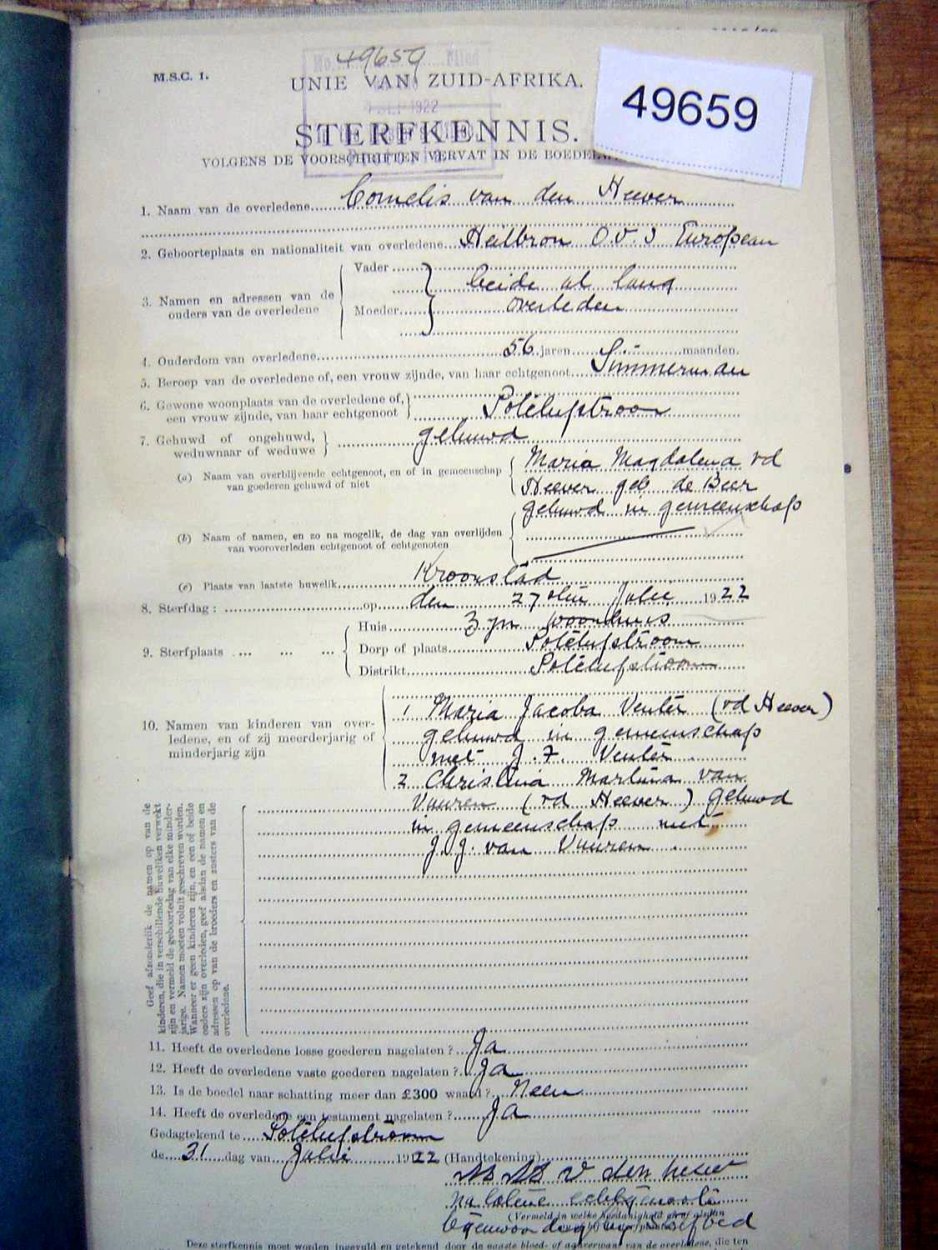 49659
M.S.C. 1.
UNIE VAN ZUID-AFRIKA.
1922
49659
STERFKENNIS.
VOLGENS DE VOORSCHRIFTEN VERVAT IN DE
1. Naam van de overledene Cornelis van den Heever
2. Geboorteplaats en nationaliteit van overledene Heilbron O.V.S European
3. Namen en adressen van de ouders van de overledene
Vader
Moeder
beide al lang
overleden
4. Ouderdom van overledene 56 jaren maanden.
5. Beroep van de overledene of, een vrouw zijnde, van haar echtgenoot Timmerman
6. Gewone woonplaats van de overledene of,
een vrouw zijnde, van haar echtgenoot Potchefstroom
7. Gehuwd of ongehuwd,
weduwnaar of weduwe gehuwd
(a) Naam van overblijvende echtgenoot, en of in gemeenschap
van goederen gehuwd of niet
Maria Magdalena vd
Heever geb de Beer
gehuwd in gemeenschap
(b) Naam of namen, en zo na mogelik, de dag van overlijden
van vooroverleden echtgenoot of echtgenoten
(c) Plaats van laatste huwelik Kroonstad
8. Sterfdag : op den 27 Julie 1922
9. Sterfplaats
Huis Zyn woonhuis
Dorp of plaats Potchefstroom
Distrikt Potchefstroom
10. Namen van kinderen van over-
ledene, en of zij meerderjarig of
minderjarig zijn
1 Maria Jacoba Venter (vd Heever)
gehuwd in gemeenschap
met J. F. Venter
2 Christina Martina van
Vuuren (vd Heever) gehuwd
in gemeenschap met
J. J. van Vuuren.
Geef afzonderlik de namen op van de
kinderen, die in verschillende huweliken verwekt
zijn en vermeld de geboortedag van elke minder-
jarige. Namen moeten voluit geschreven worden.
Wanneer er geen kinderen zijn, en een of beide
ouders zijn overleden, geef alsdan de namen en
adressen op van de broeders en zusters van de
overledene.
11. Heeft de overledene losse goederen nagelaten ? Ja
12. Heeft de overledene vaste goederen nagelaten ? Ja
13. Is de boedel naar schatting meer dan £300 waard ? Neen
14. Heeft de overledene een testament nagelaten ? Ja
Gedagtekend te Potchefstroom
de 31 dag van Julie 1922 (Handtekening)
v den heever
na latene echtgenoote
(Vermeld in welke hoedanigheid
Deze sterfkennis moet worden ingevuld en getekend door de naaste bloed- of aanverwant van de overledene, die ten